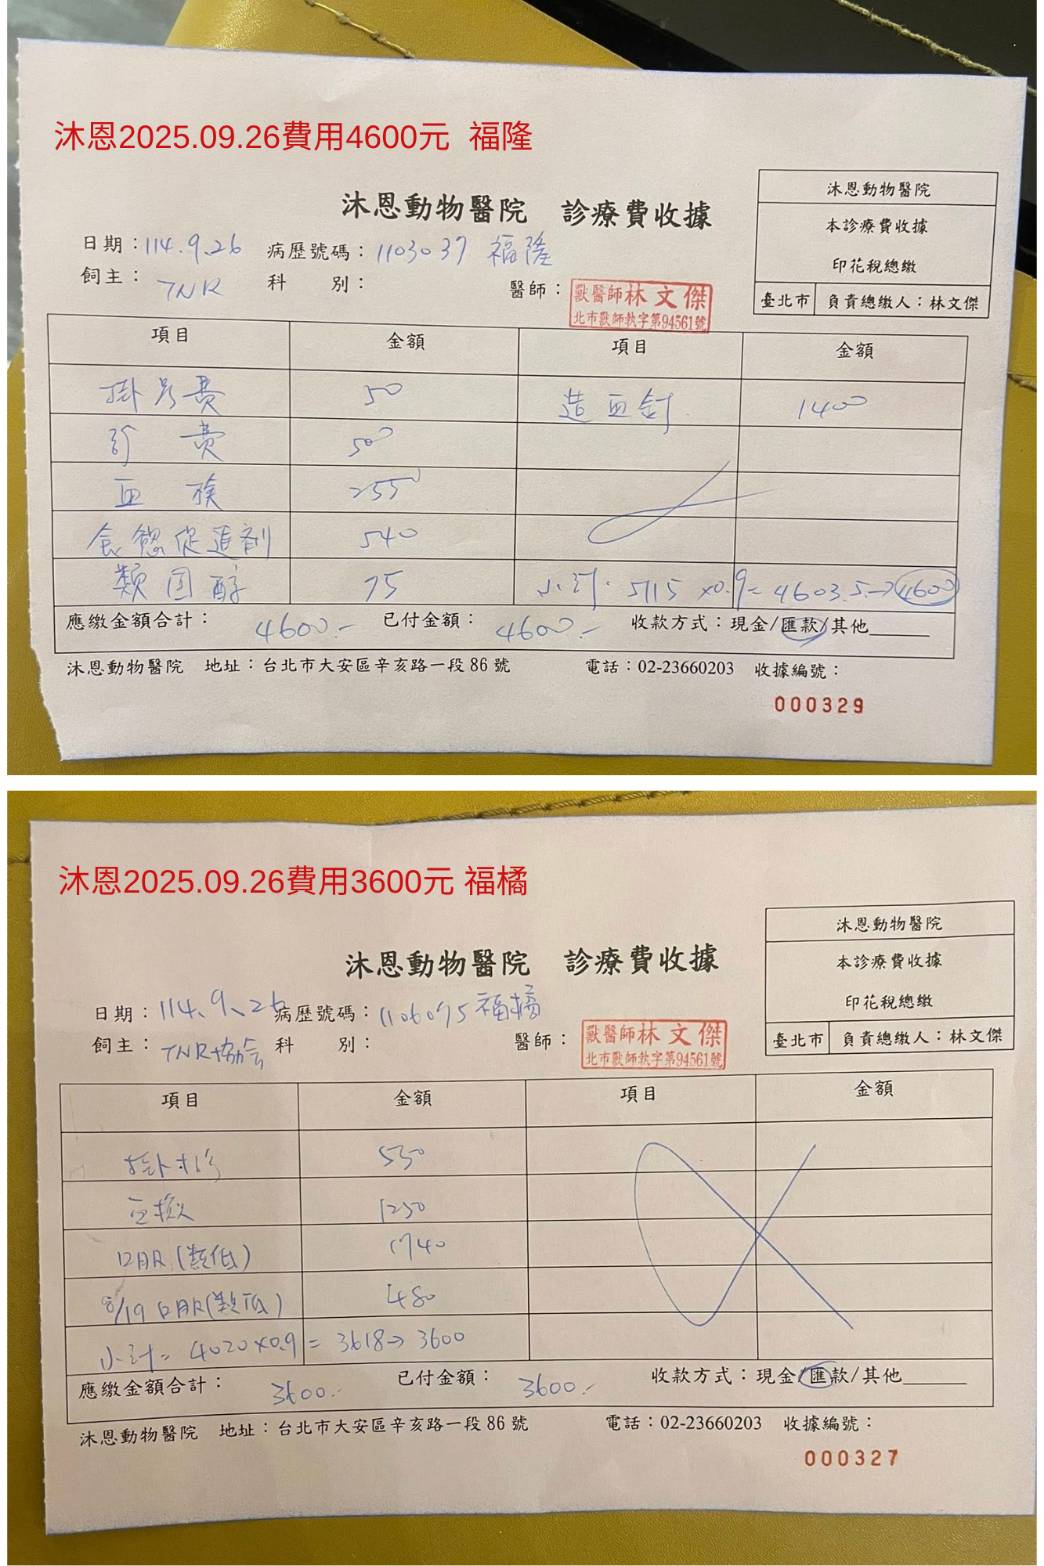 沐恩2025.09.26費用4600元 福隆
沐恩動物醫院 診療費收據
沐恩動物醫院
本診療費收據
印花稅總繳
臺北市 負責總繳人：林文傑
日期：114.9.26 病歷號碼：1103037 福隆
飼主：TNR 科 別： 醫師： 獸醫師林文傑
北市獸師執字第94561號
項目 金額 項目 金額
掛號費 50 造血針 1400
診 費 500
血 檢 2550
食慾促進劑 540
類固醇 75 小計. 5115 x0.9= 4603.5→4600
應繳金額合計： 4600.- 已付金額： 4600.- 收款方式：現金/匯款/其他
沐恩動物醫院 地址：台北市大安區辛亥路一段86號 電話：02-23660203 收據編號：
000329
沐恩2025.09.26費用3600元 福橘
沐恩動物醫院 診療費收據
沐恩動物醫院
本診療費收據
印花稅總繳
臺北市 負責總繳人：林文傑
日期：114.9.26 病歷號碼：1106095 福橘
飼主：TNR協会 科 別： 醫師： 獸醫師林文傑
北市獸師執字第94561號
項目 金額 項目 金額
掛診 550
血檢 1250
口服(類低) 1740
8/19 口服(類低) 480
小計= 4020x0.9 = 3618→3600
應繳金額合計： 3600.- 已付金額： 3600.- 收款方式：現金/匯款/其他
沐恩動物醫院 地址：台北市大安區辛亥路一段86號 電話：02-23660203 收據編號：
000327